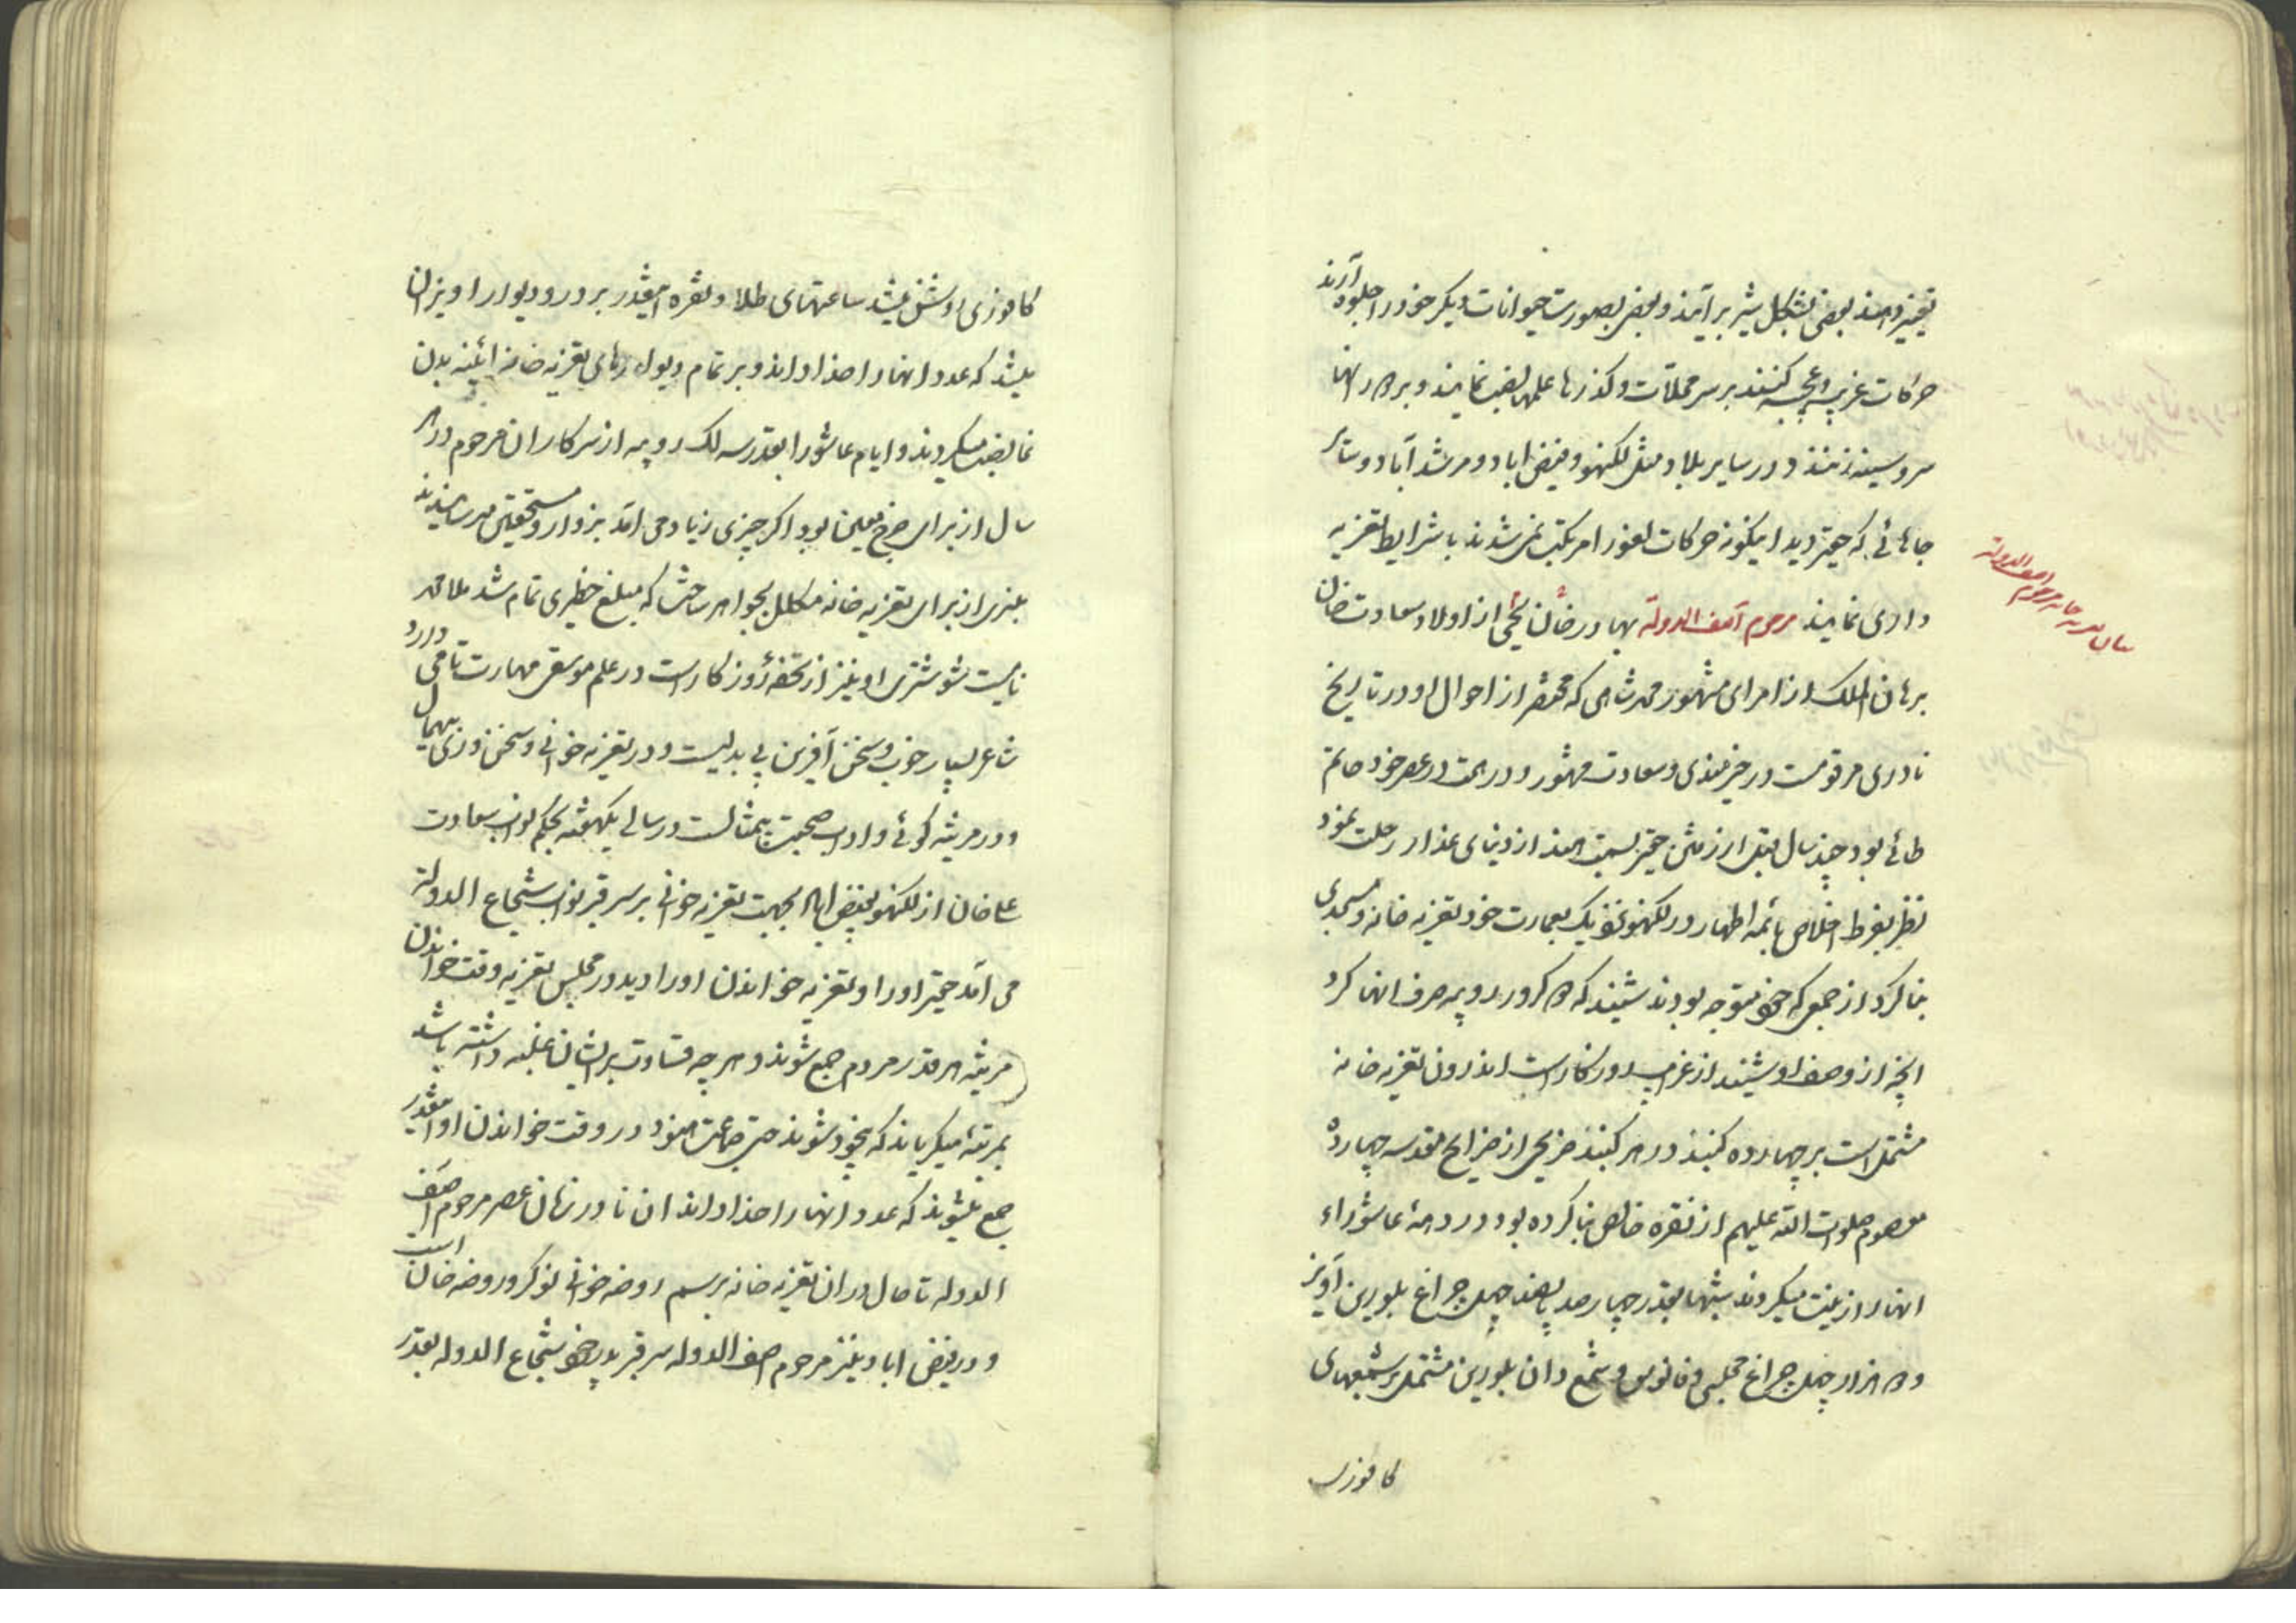 تغییر دهند بعضی بشکل شیر برآیند و بعضی بصورت حیوانات دیکر خود را جلوه آرند
حرکات غریبه و عجیبه کنند بر سر محلات و کذرها علمها نصب نمایند و بر دور انها
سر و سینه زنند و در سایر بلاد مثل لکنهو و فیض اباد و مرشد آباد و سایر
جاهائی که حقیر دید اینکونه حرکات لغو را مرتکب نمی شدند با شرایط تعزیه
داری نمایند مرحوم آصف الدوله بهادر خان یحیی از اولاد سعادت خان
برهان الملک از امرای مشهور محمد شاهی که مختصر از احوال او در تاریخ
نادری مرقومست در خیرمندی و سعادت مشهور و در همت در عصر خود حاتم
طائی بود چند سال قبل از رفتن حقیر بسمت هند از دنیای غدار رحلت نمود
نظر بفرط اخلاص بائمه اطهار در لکنهو نزدیک بعمارت خود تعزیه خانه و مسجدی
بنا کرد از جمعی که خود متوجه بودند شنیدند که ده کرور روپیه صرف انها کرد
انچه از وصف او شنیدند از غرایب روزکار است اندرون تعزیه خانه
مشتمل است بر چهارده کنبد در هر کنبد ضریحی از ضرایح مقدسه چهارده
معصوم صلوات الله علیهم از نقره خالص بنا کرده بود در دههٔ عاشوراء
انها را زینت میکردند شبها بقدر چهارصد پانصد چهل چراغ بلورین آویز
و ده هزار چهل چراغ مجلسی و فانوس و شمع دان بلورین مشتمل بر شمعهای
کافوری
بیان تعزیه خانه مرحوم اصف الدوله
کافوری روشن میشد ساعتهای طلا و نقره اینقدر بر در و دیوار اویزان
میشد که عدد انها را خدا داند و بر تمام دیوارهای تعزیه خانه ائینه بدن
نما نصب میکردند و ایام عاشورا بقدر سه لک روپیه از سرکار ان مرحوم در هر
سال از برای خرج معین بود اکر چیزی زیاد می امد بزوار و مستحقین میرسانیدند
منبری از برای تعزیه خانه مکلل بجواهر ساخت که مبلغ خطیری تمام شد ملا محمد
نامیست شوشتری او نیز از تحفهٔ روزکار است در علم موسقی مهارت تامی دارد
شاعر بسیار خوب و سخن آفرین بی بدلیست و در تعزیه خوانی و سخن وزی بیهمال
و در مرثیه کوئی و اداب صحبت بیمثالست در سالی یکهفته بحکم نواب سعادت
علی خان از لکنهو بفیض اباد بجهت تعزیه خوانی بر سر قبر نواب شجاع الدوله
می آمد حقیر او را و تعزیه خواندن او را دید در مجلس تعزیه وقت خواندن
مرثیه هر قدر مردم جمع شوند و هر چه قساوت بر ایشان غلبه داشته باشد
بمرتبهٔ میکریاند که بیخود شوند حتی جماعت هنود در وقت خواندن او اینقدر
جمع میشوند که عدد انها را خدا داند ان نادر زمان عصر مرحوم اصف
الدوله تا حال در ان تعزیه خانه برسم روضه خوانی نوکر و روضه خان است
و در فیض اباد نیز مرحوم اصف الدوله سر قبر پدر خود شجاع الدوله بقدر